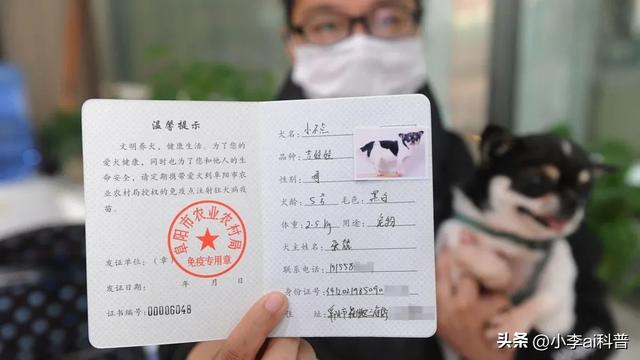 温馨提示
文明养犬，健康生活。为了您的
爱犬健康，同时也为了您和他人的生
命安全，请定期携带爱犬到阜阳市农
业农村局授权的免疫点注射狂犬病疫
苗。
发证单位：（章
发证日期： 年 月 日
证书编号：00006048
阜阳市农业农村局
免疫专用章
犬名：小不点
品种：吉娃娃
性别：
犬龄：5岁 毛色：黑白
体重：2.5kg 用途：宠物
犬主姓名：
联系电话：191558
身份证号：
住 址：
头条 @小李ai科普